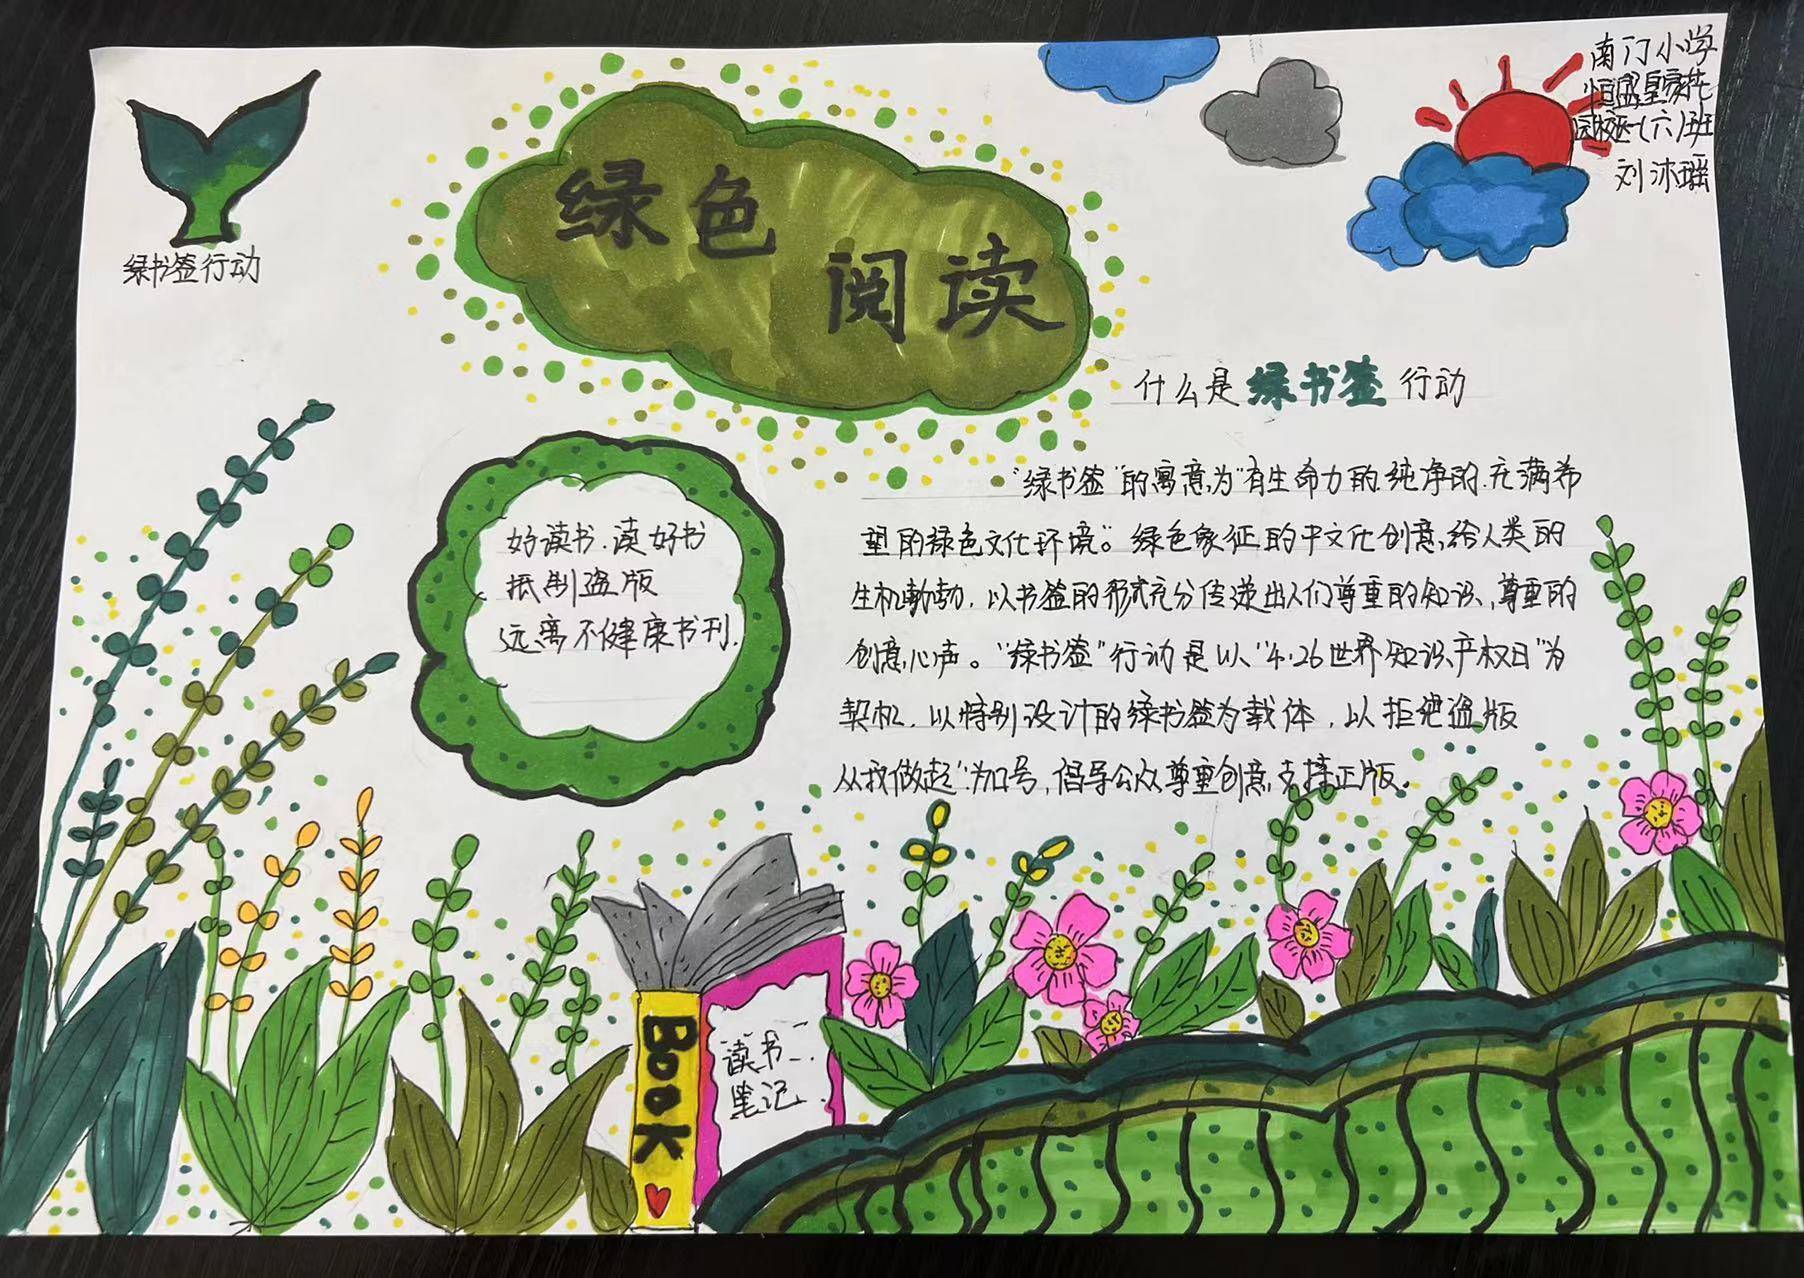 绿书签行动
绿色
阅读
南门小学
恒盛皇家花
园校区一(六)班
刘沐瑶
什么是绿书签行动
好读书.读好书
抵制盗版
远离不健康书刊.
"绿书签"的寓意为"有生命力的.纯净的.充满希
望的绿色文化环境"。绿色象征的中文化创意,给人类的
生机勃勃,以书签的形式充分传递出人们尊重的知识,尊重的
创意心声。"绿书签"行动是以"4·26世界知识产权日"为
契机,以特别设计的绿书签为载体,以拒绝盗版
从我做起"为口号,倡导公众尊重创意支持正版。
BooK
读书
笔记